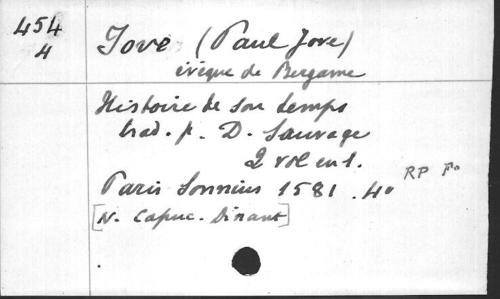 454
4
Jove (Paul Jove)
évêque de Bergame
Histoire de son temps
trad. p. D. Sauvage
2 vol en 1.
Paris Sonnius 1581. 4º RP Fº
[N. Capuc. Dinant]